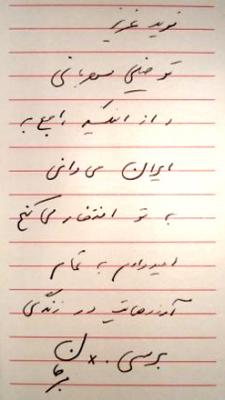 نوید عزیز
تو خیلی مهربانی
و از انگیسه راجع به
ایران می دانی
به تو افتخار می کنم
امیدوارم به تمام
آرزوهایت در زندگی
برسی. x